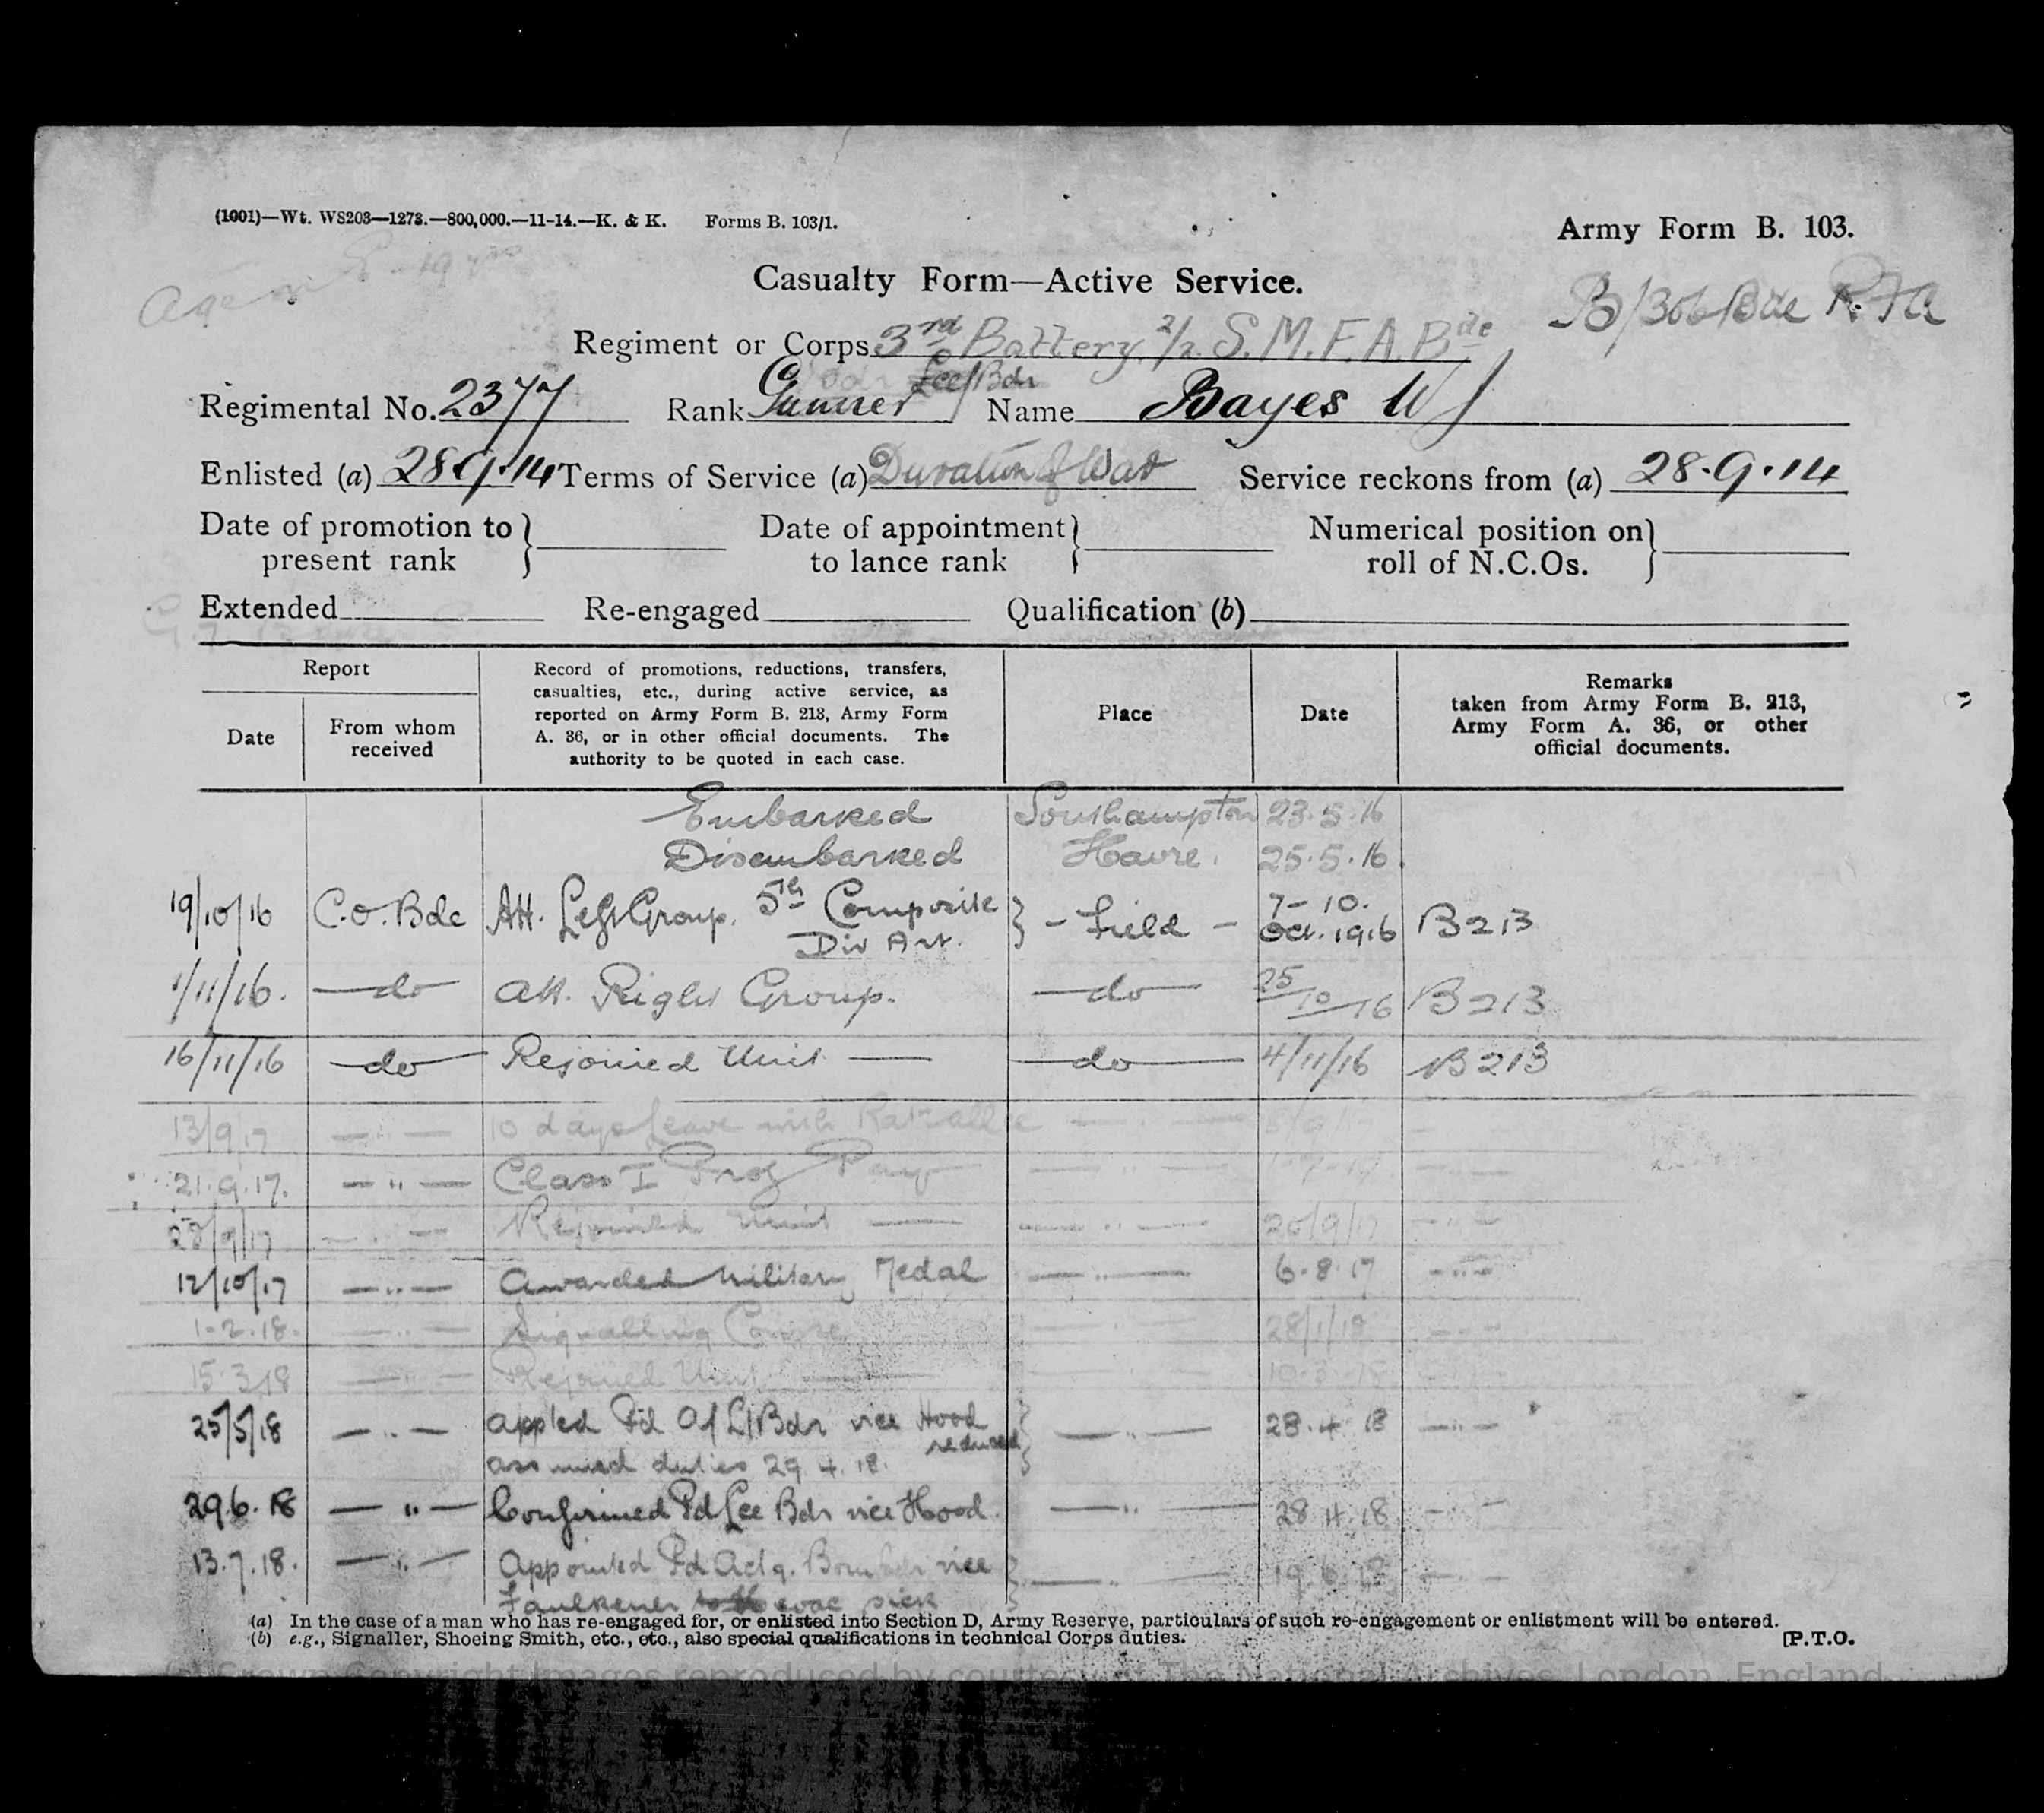 (1001)—Wt. W5203—1273.—800,000.—11-14.—K. & K. Forms B. 103/1.
Army Form B. 103.
Casualty Form—Active Service.
B/306 Bde R.F.A
Regiment or Corps 3rd Battery 2/2 S.M.F.A. Bde
Bdr Lce/Bdr
Regimental No. 2377 Rank Gunner Name Bayes W J
Enlisted (a) 28.9.14 Terms of Service (a) Duration of War Service reckons from (a) 28.9.14
Date of promotion to present rank } Date of appointment to lance rank } Numerical position on roll of N.C.Os. }
Extended Re-engaged Qualification (b)
Report
Date
From whom received
Record of promotions, reductions, transfers,
casualties, etc., during active service, as
reported on Army Form B. 213, Army Form
A. 36, or in other official documents. The
authority to be quoted in each case.
Place
Date
Remarks
taken from Army Form B. 213,
Army Form A. 36, or other
official documents.
Embarked Southampton 23.5.16
Disembarked Havre. 25.5.16.
19/10/16 C.O. Bde Att. Left Group. 5th Composite Div Art. } - Field - 7-10. Oct. 1916 B213
1/11/16. —do— Att. Right Group. —do— 25/10/16 B213
16/11/16 —do— Rejoined Unit — —do— 4/11/16 B213
13/9/17 — " — 10 days leave with Rat. allce — " — — " —
21.9.17. — " — Class I Prof Pay — " — — " —
28/9/17 — " — Rejoined Unit — — " — 20/9/17 — " —
12/10/17 — " — Awarded Military Medal — " — 6.8.17 — " —
1-2.18. — " — Signalling Course — " — 28/1/18 — " —
15.3.18 — " — Rejoined Unit — — " — 10.3.18 — " —
25/5/18 — " — appted Pd A/L/Bdr vice Hood reduced } — " — 28.4.18 — " —
assumed duties 29.4.18.
29.6.18 — " — Confirmed Pd Lce Bdr vice Hood. — " — 28.4.18 — " —
13.7.18. — " — Appointed Pd Actg. Bombdr vice } — " — 19.6.18 — " —
Faulkener evac sick
(a) In the case of a man who has re-engaged for, or enlisted into Section D, Army Reserve, particulars of such re-engagement or enlistment will be entered.
(b) e.g., Signaller, Shoeing Smith, etc., etc., also special qualifications in technical Corps duties.
[P.T.O.
Crown Copyright Images reproduced by courtesy of The National Archives, London, England